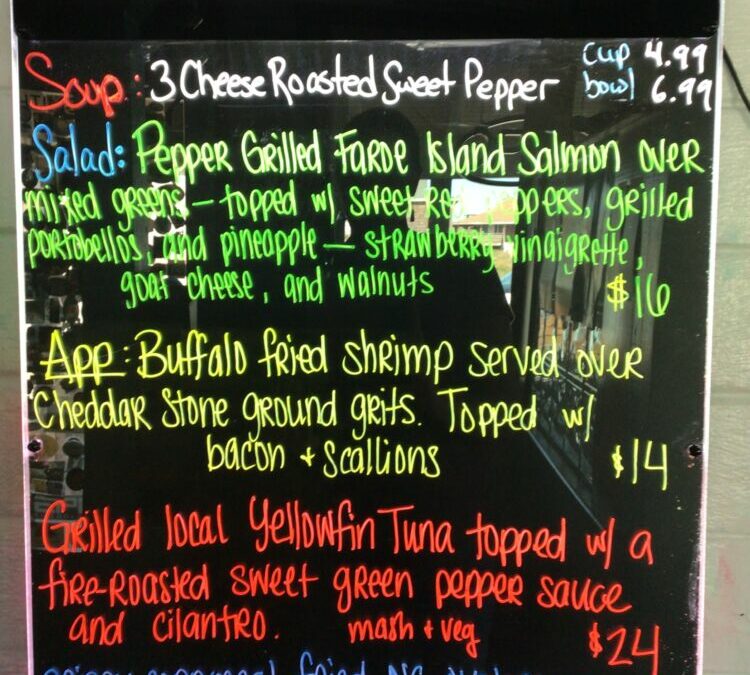 Soup: 3 Cheese Roasted Sweet Pepper cup 4.99
bowl 6.99
Salad: Pepper Grilled Faroe Island Salmon over
mixed greens - topped w/ sweet red peppers, grilled
portobellos, and pineapple - strawberry vinaigrette,
goat cheese, and walnuts $16
App: Buffalo fried shrimp served over
Cheddar Stone ground grits. Topped w/
bacon + scallions $14
Grilled local Yellowfin Tuna topped w/ a
fire-roasted sweet green pepper sauce
and cilantro. mash + veg $24
fried